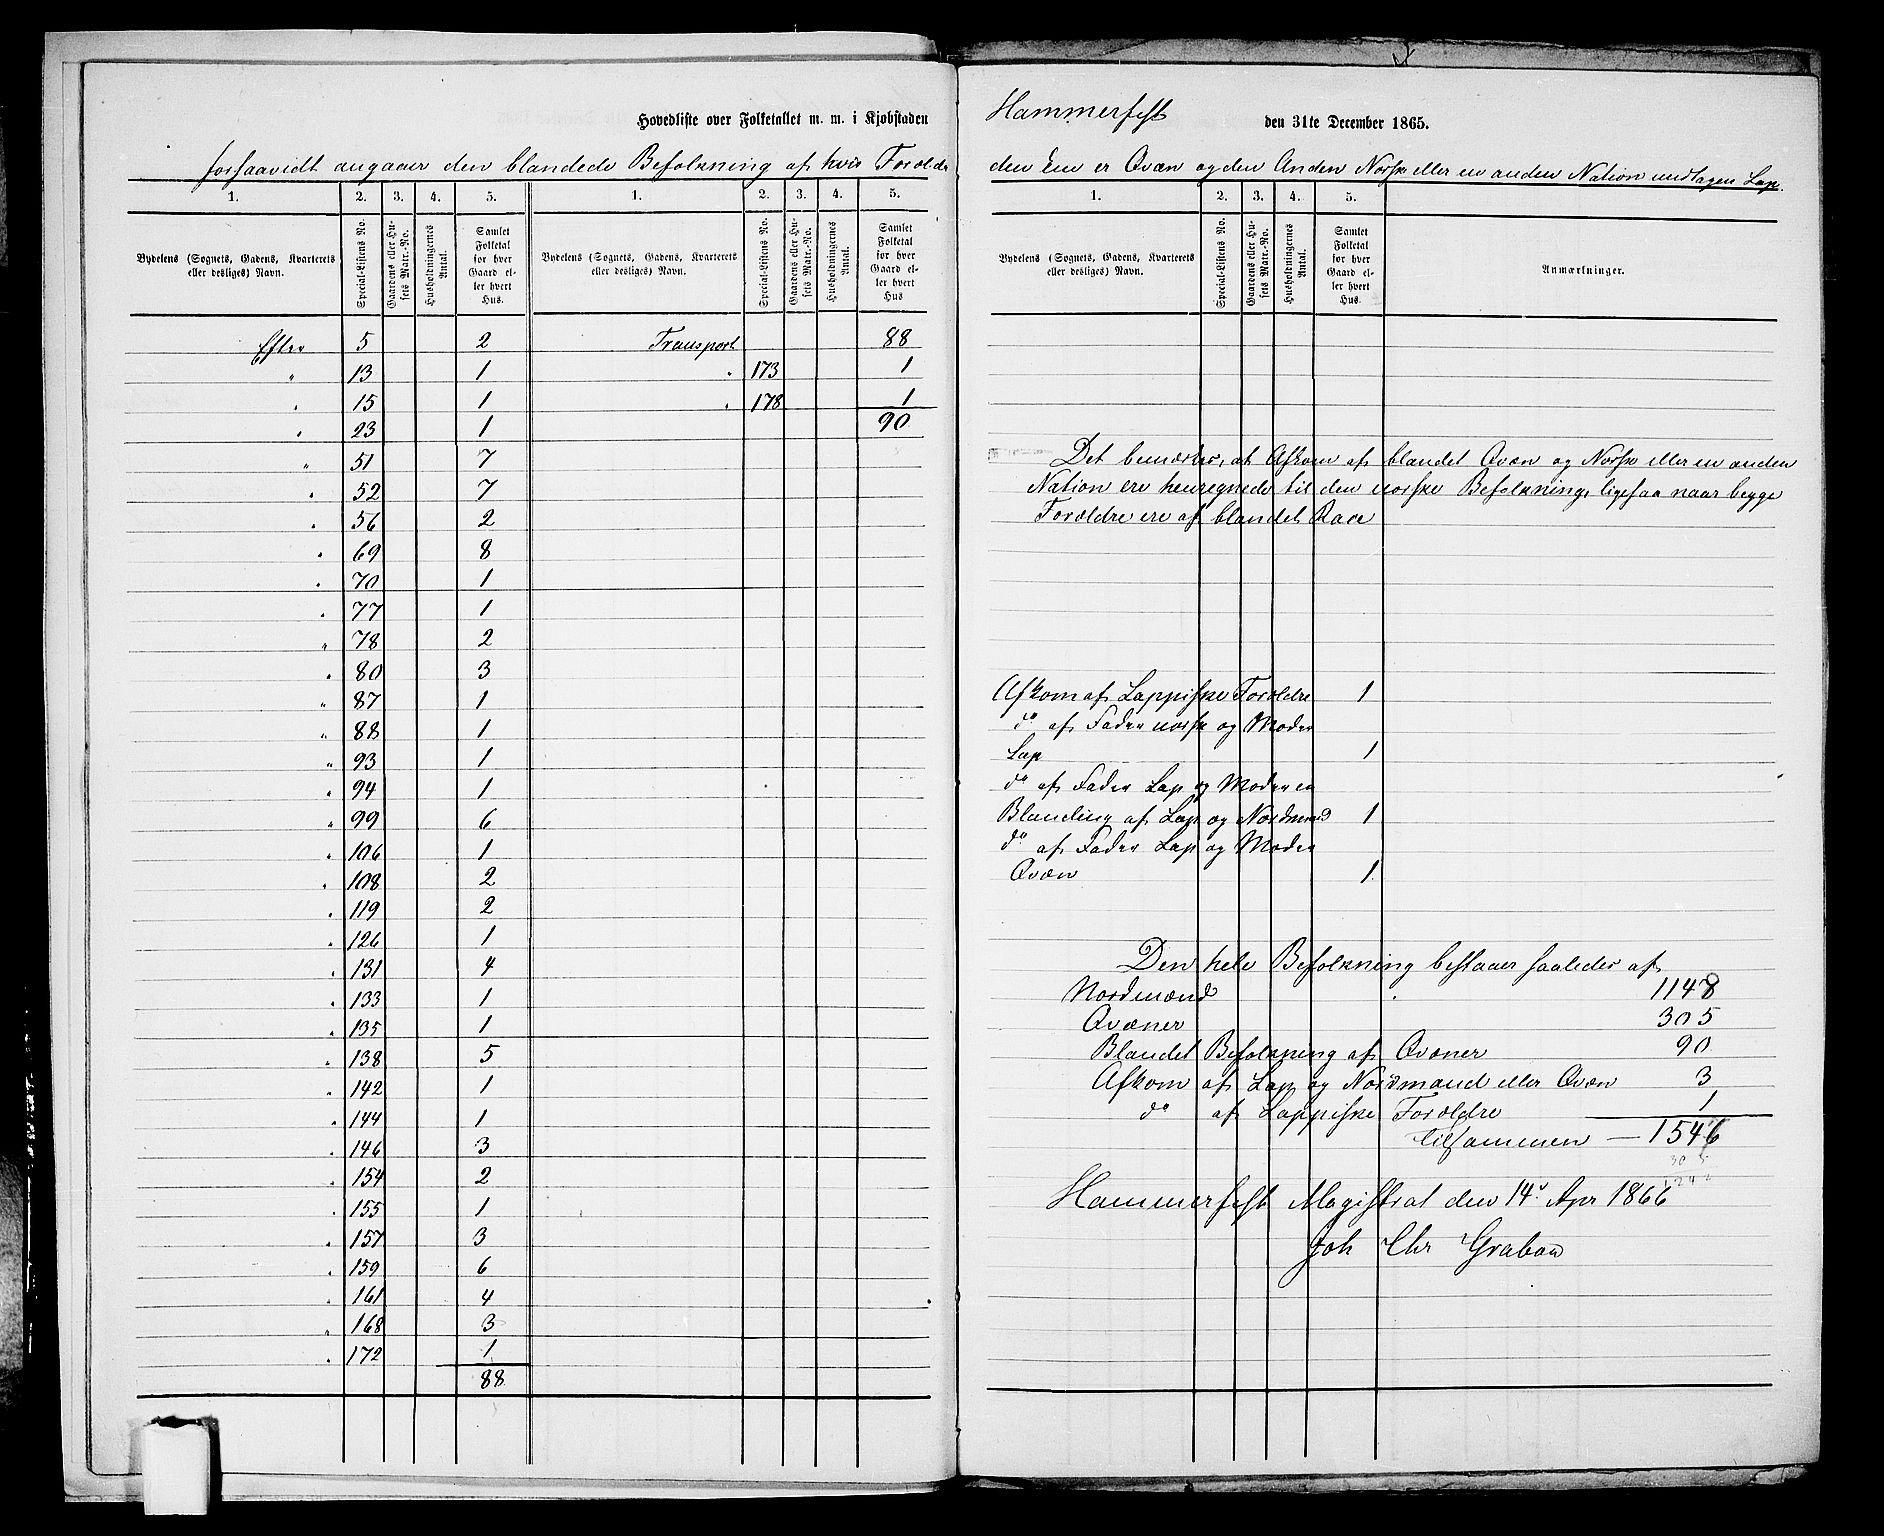 Hovedliste over Folketallet m. m. i Kjøbstaden Hammerfest den 31te December 1865.
forsaavidt angaaer den blandede Befolkning af hvis Forældre den Ene er Qvæn og den Anden Norsk eller en anden Nation undtagen Lap.
1. 2. 3. 4. 5. 1. 2. 3. 4. 5.
Bydelens (Sognets, Gadens, Kvarterets eller desliges) Navn.
Special-Listens No.
Gaardens eller Husets Matr.-No.
Husholdningernes Antal.
Samlet Folketal for hver Gaard eller hvert Hus.
Bydelens (Sognets, Gadens, Kvarterets eller desliges) Navn.
Special-Listens No.
Gaardens eller Husets Matr.-No.
Husholdningernes Antal.
Samlet Folketal for hver Gaard eller hvert Hus
Efter 5 2
" 13 1
" 15 1
" 23 1
" 51 7
" 52 7
" 56 2
" 69 8
" 70 1
" 77 1
" 78 2
" 80 3
" 87 1
" 88 1
" 93 1
" 94 1
" 99 6
" 106 1
" 108 2
" 119 2
" 126 1
" 131 4
" 133 1
" 135 1
" 138 5
" 142 1
" 144 1
" 146 3
" 154 2
" 155 1
" 157 3
" 159 6
" 161 4
" 168 3
" 172 1
88
Transport 88
" 173 1
" 178 1
90
1. 2. 3. 4. 5.
Bydelens (Sognets, Gadens, Kvarterets eller desliges) Navn.
Special-Listens No.
Gaardens eller Husets Matr.-No.
Husholdningernes Antal.
Samlet Folketal for hver Gaard eller hvert Hus.
Anmærkninger.
Det bemærkes, at Afkom af blandet Qvæn og Norsk eller en anden
Nation ere henregnede til den norske Befolkning, ligesaa naar begge
Forældre ere af blandet Race
Afkom af Lappiske Forældre 1
do af Fader norsk og Moder
Lap 1
do af Fader Lap og Moder en
Blanding af Lap og Nordmand 1
do af Fader Lap og Moder
Qvæn 1
Den hele Befolkning bestaaer saaledes af
Nordmænd 1148
Qvæner 305
Blandet Befolkning af Qvæner 90
Afkom af Lap og Nordmand eller Qvæn 3
do af Lappiske Forældre 1
tilsammen — 1546
305
Hammerfest Magistrat den 14de Apr 1866
Joh Chr